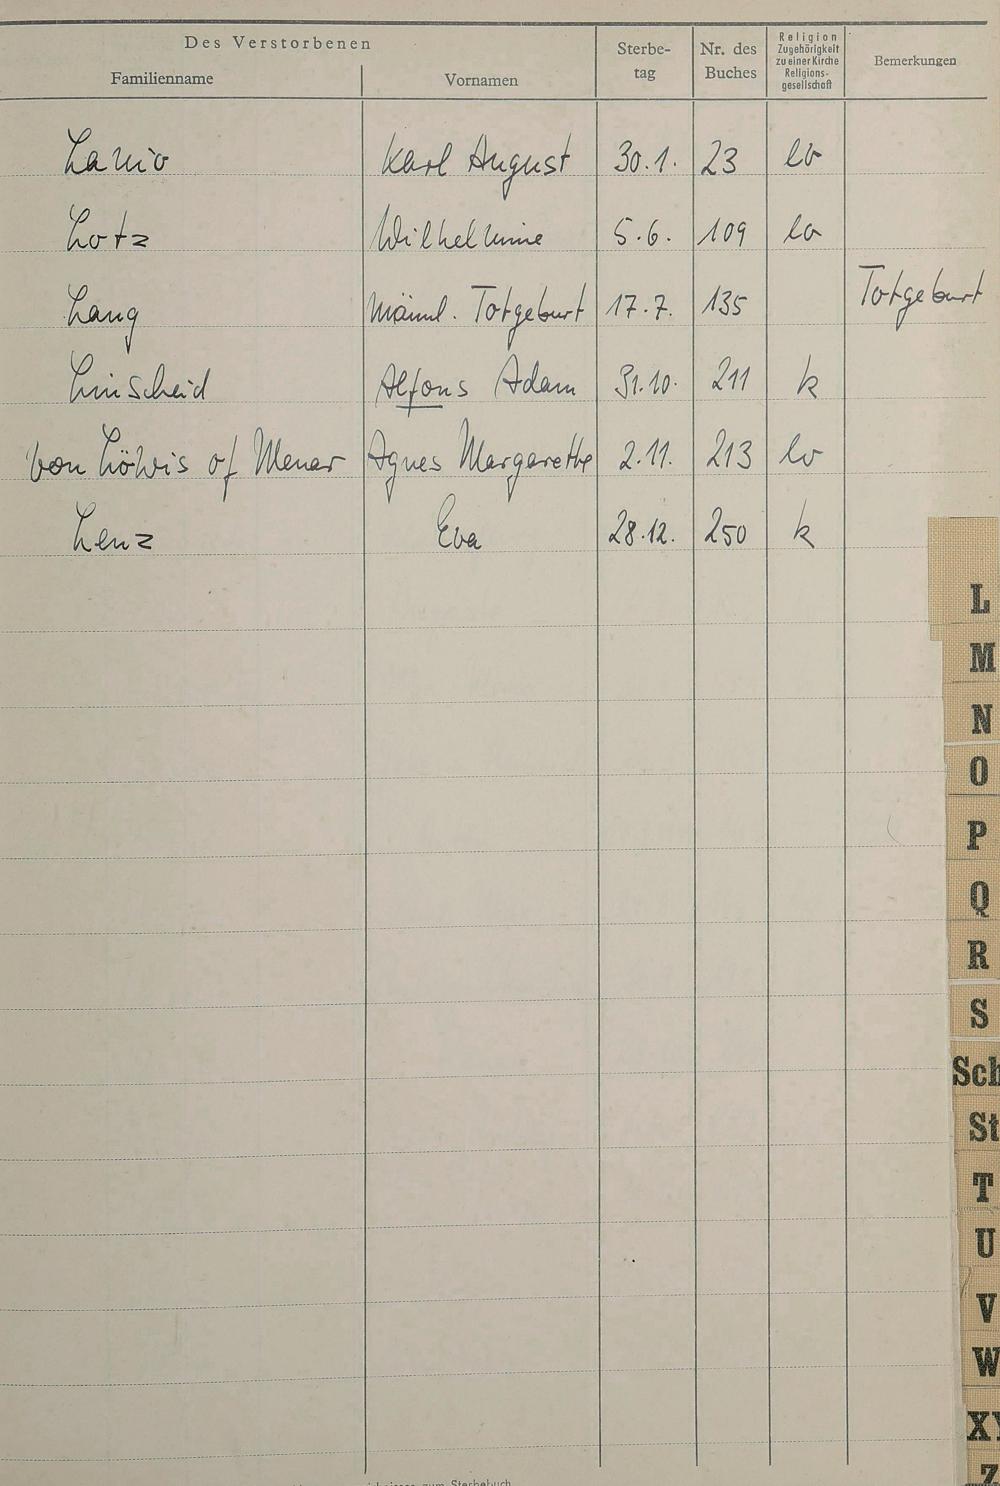 Des Verstorbenen
Familienname Vornamen Sterbe-tag Nr. des Buches Religion Zugehörigkeit zu einer Kirche Religions-gesellschaft Bemerkungen
Karl August 30.1. 23
Lotz Wilhelmine 5.6. 109
Lang Männl. Totgeburt 17.7. 135 Totgeburt
Linscheid Alfons Adam 31.10. 211 k
von Löwis of Menar Agnes Margarethe 2.11. 213
Lenz Eva 28.12. 250 k
L
M
N
O
P
Q
R
S
Sch
St
T
U
V
W
XY
Z
zum Sterbebuch